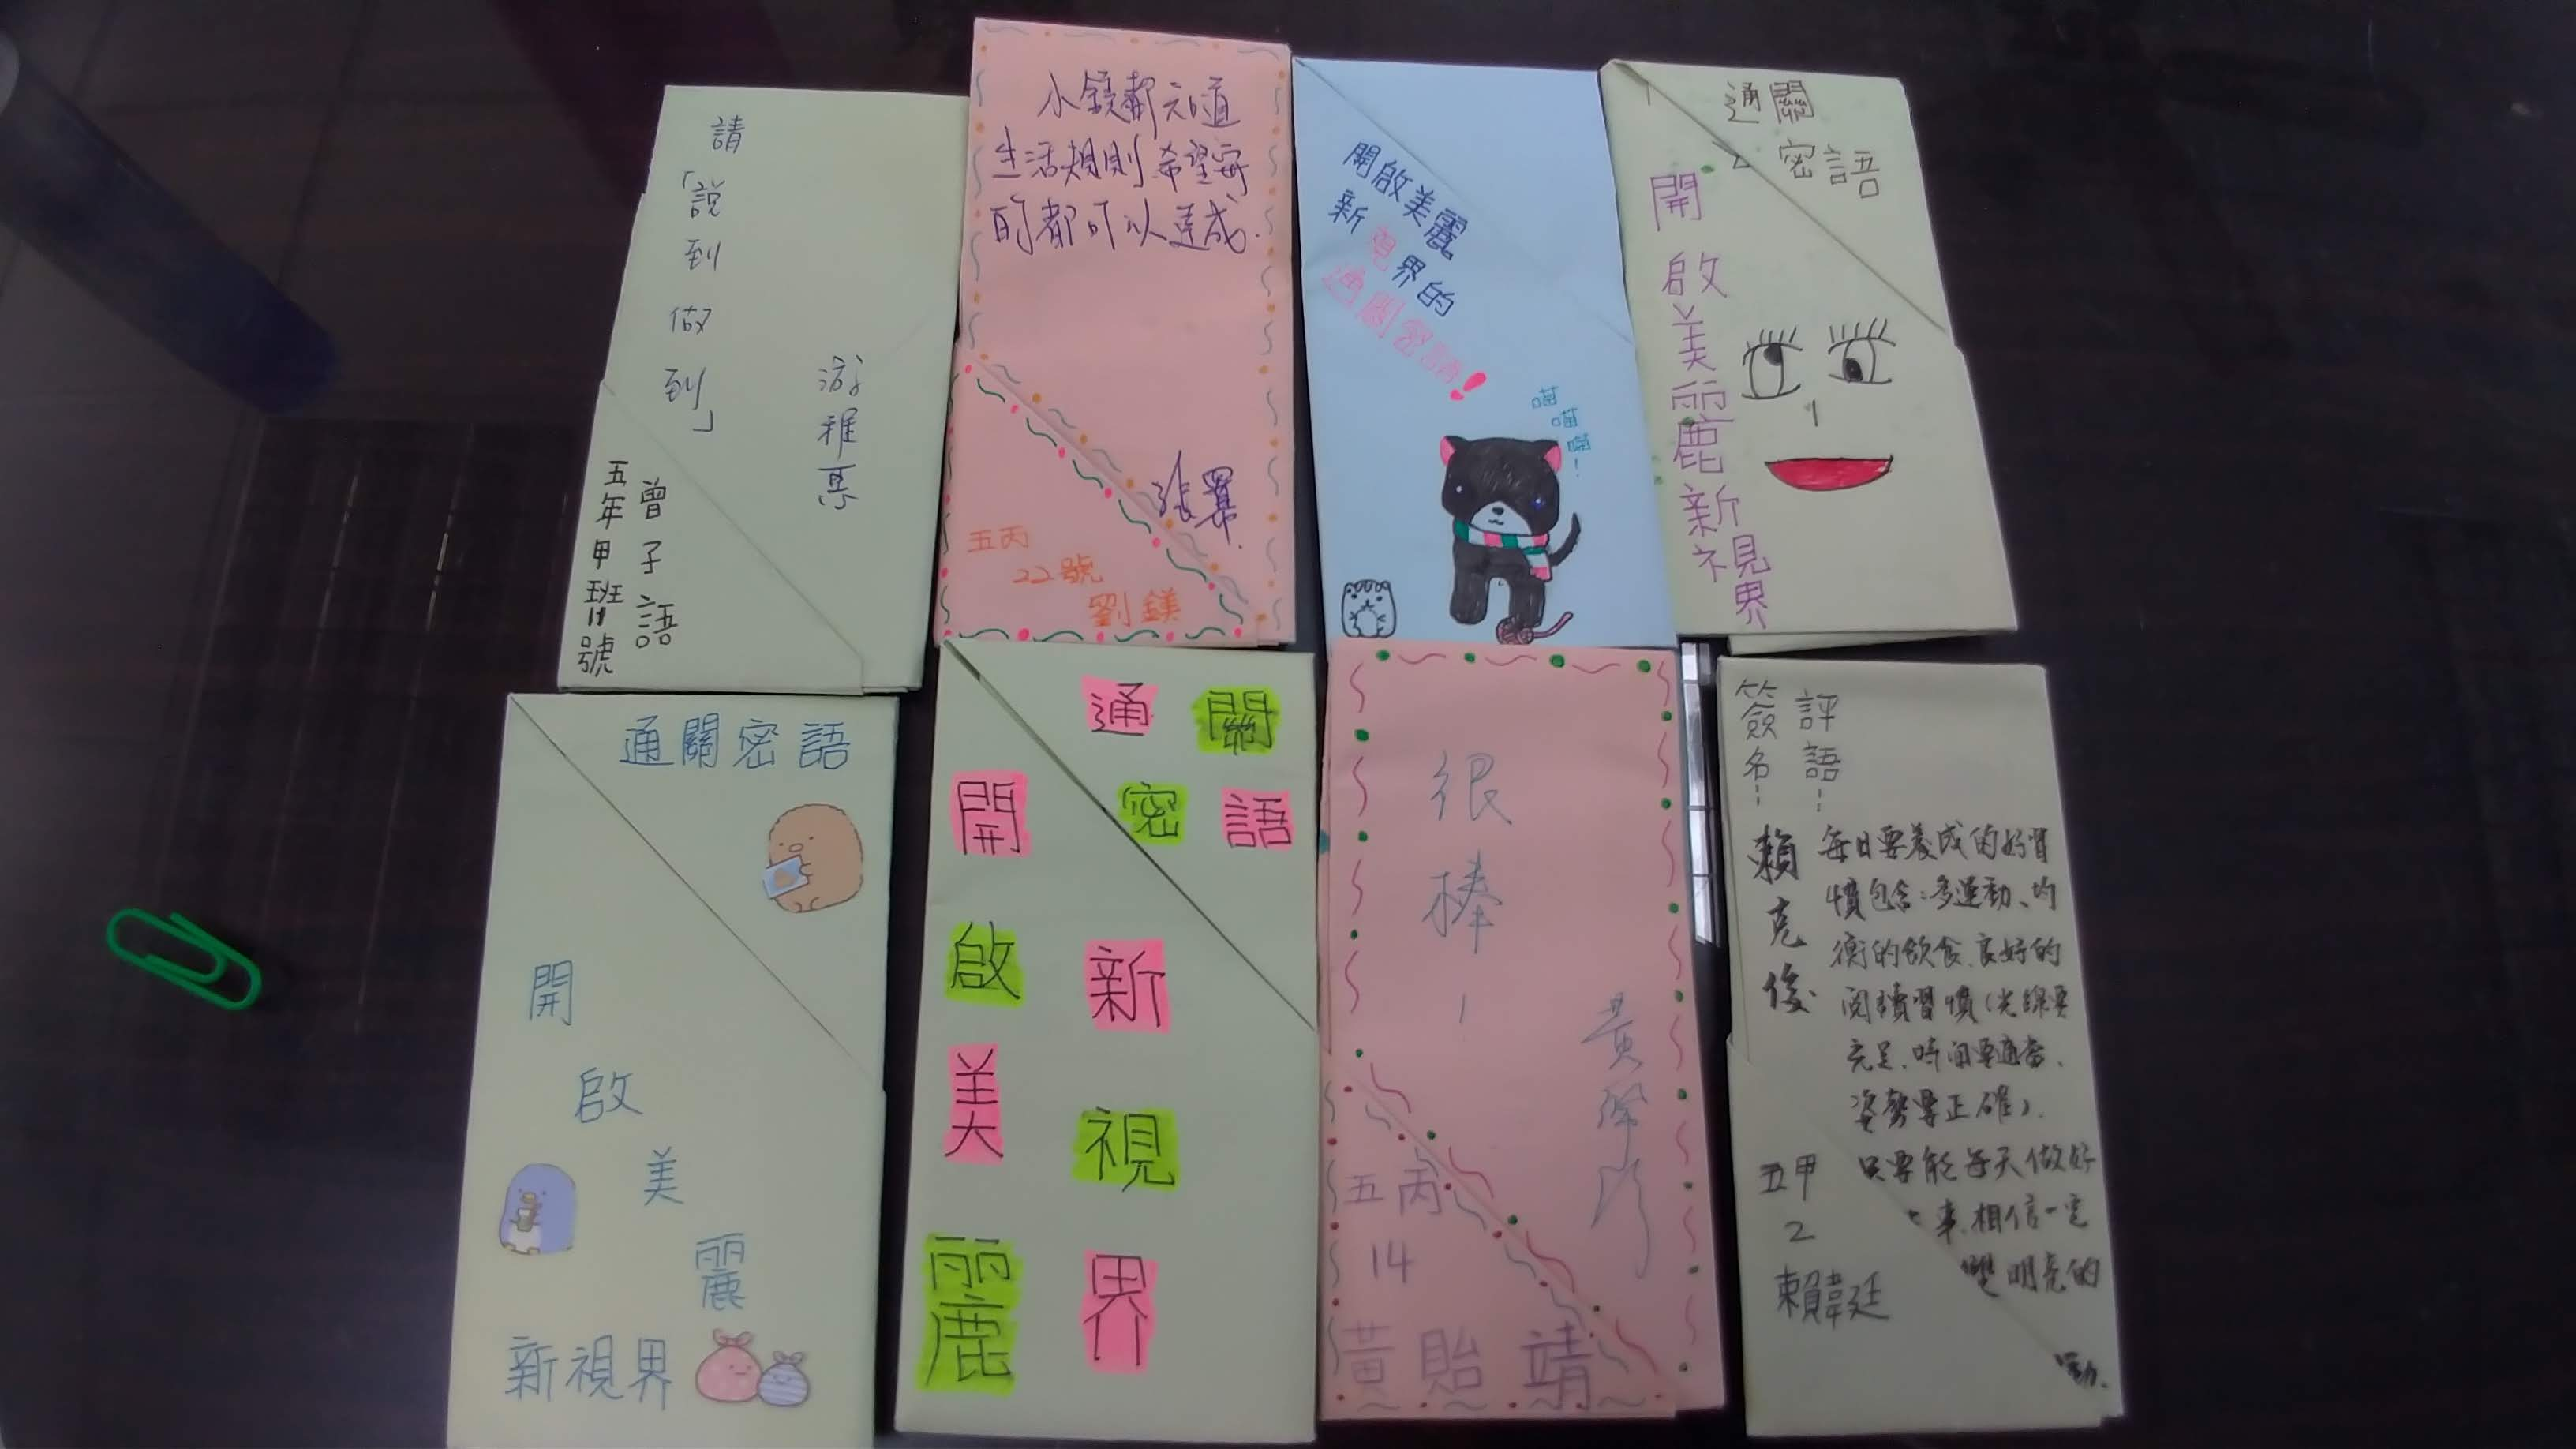 請
「說到做到」
游雅惠
五年甲班11號
曾子語
小鎂都知道
生活規則希望寫
的都可以達成.
張
五丙
22號
劉鎂
開啟美麗
新視界的
通關密語!
喵喵喵!
通關
密語
開啟美麗新視界
通關密語
開
啟
美
麗
新視界
通關
密語
開啟美麗
新視界
很棒!
黃
五丙
14
黃貽靖
評語:
每日要養成的好習
慣包含:多運動、均
衡的飲食、良好的
閱讀習慣(光線要
充足、時間要適當、
姿勢要正確)、
只要能每天做好
來,相信一定
雙明亮的
簽名:
賴克俊
五甲
2
賴韋廷